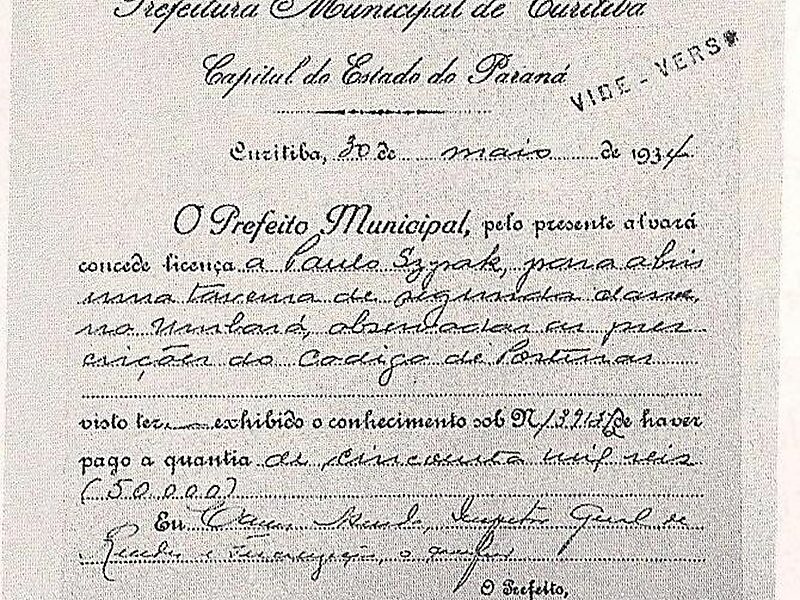 Prefeitura Municipal de Curitiba
Capital do Estado do Paraná
VIDE-VERSO
Curitiba, 30 de maio de 1934
O Prefeito Municipal, pelo presente alvará
concede licença a Paulo Szpak, para abrir
uma taverna de segunda classe,
no Umbará, observadas as pres
crições do Codigo de Posturas
visto ter exhibido o conhecimento sob N. de haver
pago a quantia de cincoenta mil reis
(50.000)
Eu Inspetor Geral de
Rendas e
O Prefeito,